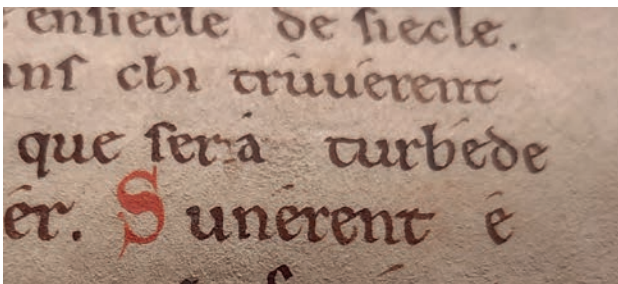 ensiecle de siecle.
chi truuerent
que será turbéde
ér. Sunérent é